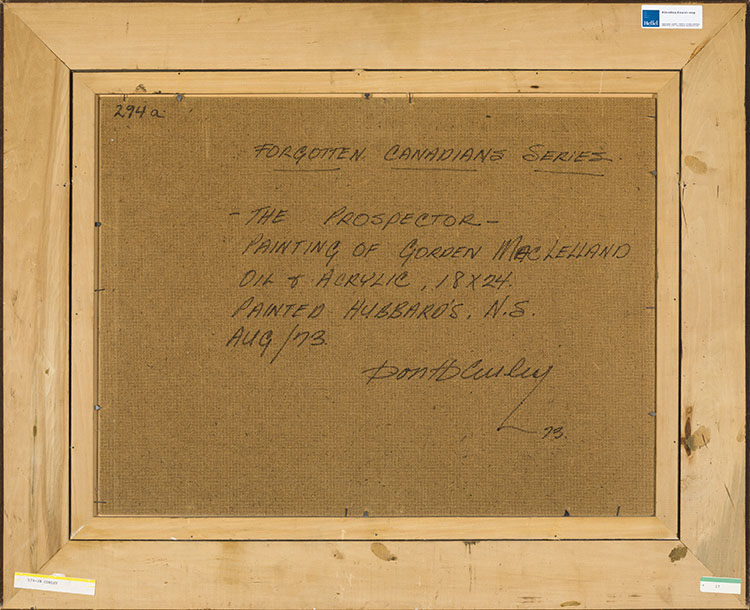 Heffel
294a
FORGOTTEN CANADIANS SERIES.
- THE PROSPECTOR -
PAINTING OF GORDEN MACLELLAND
OIL & ACRYLIC, 18X24.
PAINTED HUBBARD'S, N.S.
AUG/73
Don H Curley
73.